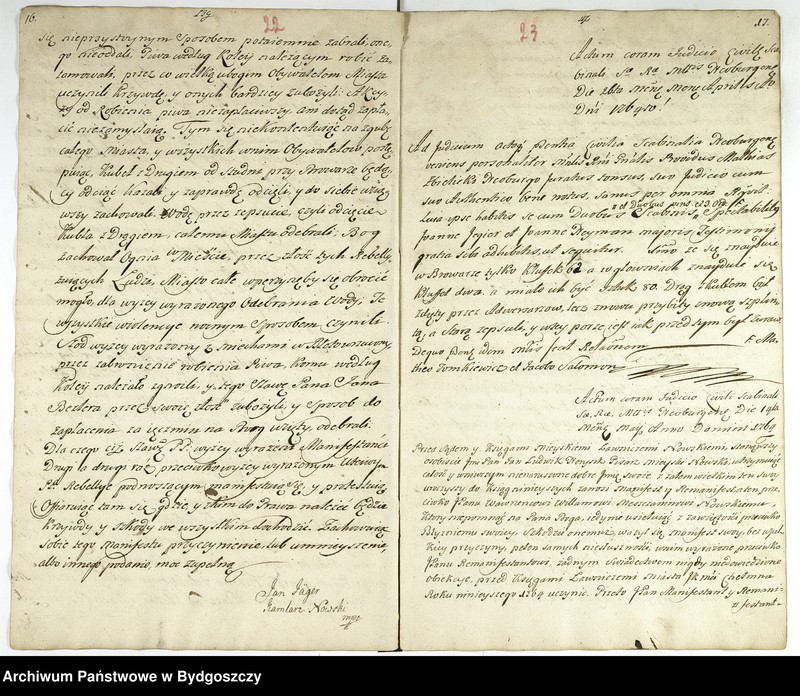 16.
22
się nieprzystoynym Sposobem potaiemnie zabrali, one
go nieoddali, Piwa według Koley należącym robić za
tamowali, przez co wielką ubogim Obywatelom Miasta
uczynili Krzywdę, y onych bardziey zubożyli: Akcy
zy od Robienia piwa niezapłaciwszy, ani dotąd zapła
cić niezamyślaią. Tym się niekontentuiąc na zgubę
całego Miasta, y wszystkich wnim Obywatelow, postę
puiąc, Kubeł z Drągiem od Studni przy Browarze będą
cy odciąć Kazali y zaprawdę odcieli, y do siebie wziąw
wszy zachowali. Wodę przez zepsucie, czyli odcięcie
Kubła z Drągiem, całemu Miastu odebrali: Bog
zachował Ognia w Mieście, przez złość tych Rebelly
zuiących Ludzi, Miasto całe wperzynę by się obrocić
mogło, dla wyżey wyrażonego Odebrania Wody, Te
wszystkie wiolencye nocnym Sposobem czynili
Słod wyżey wyrażony z miechami w
przez zabronienie robienia Piwa, Komu według
Koleij należało zgnoili, y tego Sławę Pana Jana
przez swoię złość zubożyli, y Sposob do
zapłacenia za ięczmień na Słod wzięty, odebrali.
Dla czego ciż Sławę PP. wyżey wyrażeni Manifestanci
Drugi o drugi raz przeciwko wyżey wyrażonym
Pm Rebellye podnoszącym manifestuią się, y protestuią
Offiaruiąc tam się gdzie y z kim do Prawa należeć będzie
Krzywdy y szkody we wszystkim dochodzić. Zachowuiąc
sobie tego manifestu przyczynienie, lub umnieyszenie,
albo innego podanie, moc zupełną
Jan Jäger
Kamlarz Nowski
mpp
23
17.
Actum coram Judicio Civili Sca
binali Sa Ra Mttis Neoburgensi
Die 26ta Mense Aprilis Ao
Dni 1764to!
Ad Judicium acta Civilia Scabinalia Neoburgensi
veniens personaliter Providus Mathias
Neoburgo juratus suo Judicio cum
suo Authentico bene notus, sanus per omnia
se cum Duobus Scabinis, Spectabilibus
Joanne Jegier et Joanne Neyman majoris Testimonij
gratia sibi adhibitis, ut sequitur. Imo że się znayduie
w Browarze tylko Kłufek 62 a w głownach znayduie się
Kłuffel dwa. a miało ich być 80. Drąg z kubłem był
zdięty przez Adwersarzow, lecz znowu przybity
tą, a Starą zepsuli, y wtey porze iest iak przed tym był
De quo idem fecit Relationem F. Ma-
theo Tomkiewicz et Jacobo Salomon
Actum coram Judicio Civili Scabinali
Sa. Ra. Mttis Neoburgensi Die 19ta
Mense May Anno Domini 1764
Przed Sądem y Xięgami mieyskiemi Ławniczemi Nowskiemi, stanąwszy
osobiście Jm Pan Jan Ludwik Pisarz mieyski Nowski, utrzymuiąc
całość y wniwczym nienaruszone dobre Imię swoie z żalem wielkim ten swoy
uroczysty do Xiąg ninieyszych zanosi manifest y Remanifestacyą prze
ciwko JPanu Wawrzencowi Mieszczaninowi Nowskiemu,
Ktory niepomnąc na Pana Boga, iedynie usiłuiąc z zawziętości przeciwko
Bliźniemu swoiey, Szkodzić onemuż, ważył się manifest swoy, bez wszel
kiey przyczyny, pełen samych niesłuszności, w nim wyrażone przeciwko
JPanu Remanifestantowi, żadnym Swiadectwem nigdy niedowiedzione
obiekcye, przed Xięgami Ławniczemi Miasta JKMci Chełmna
Roku ninieyszego 1764 uczynić. Przeto JPan Manifestant y Remani-
festant-
Archiwum Państwowe w Bydgoszczy